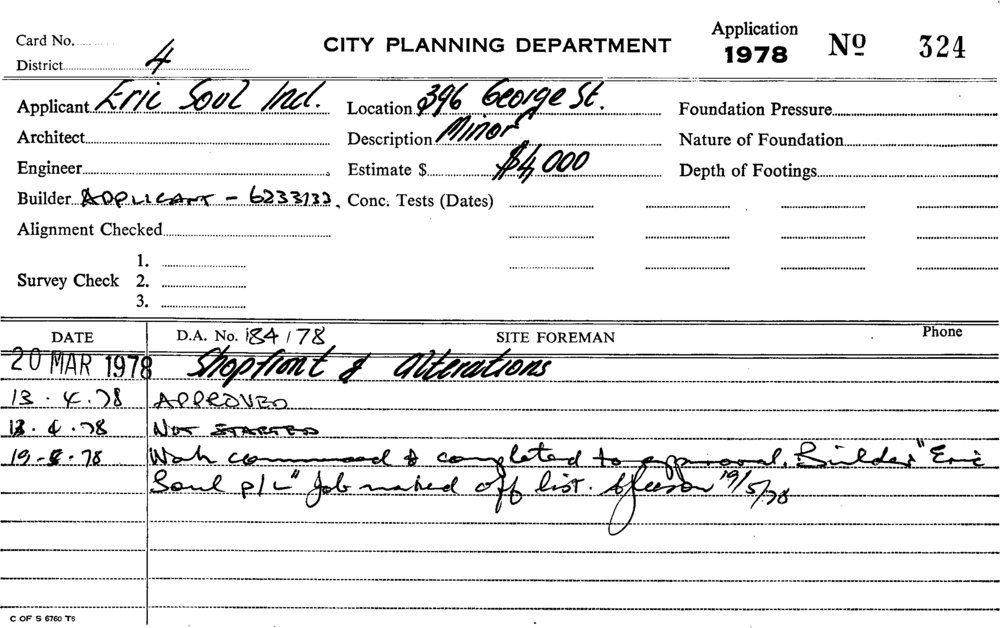 Card No.
District 4
CITY PLANNING DEPARTMENT
Application
1978
Nº 324
Applicant Eric Soul Ind.
Location 396 George St.
Foundation Pressure
Architect
Description Minor
Nature of Foundation
Engineer
Estimate $ $4,000
Depth of Footings
Builder APPLICANT - 6233132
Conc. Tests (Dates)
Alignment Checked
Survey Check
1.
2.
3.
DATE
D.A. No. 184/78
SITE FOREMAN
Phone
20 MAR 1978 Shopfront & Alterations
13.4.78 APPROVED
13.4.78 NOT STARTED
19-5-78 Work commenced & completed to approval. Builder "Eric
Soul P/L" Job marked off list. 19/5/78
C OF S 6760 T6